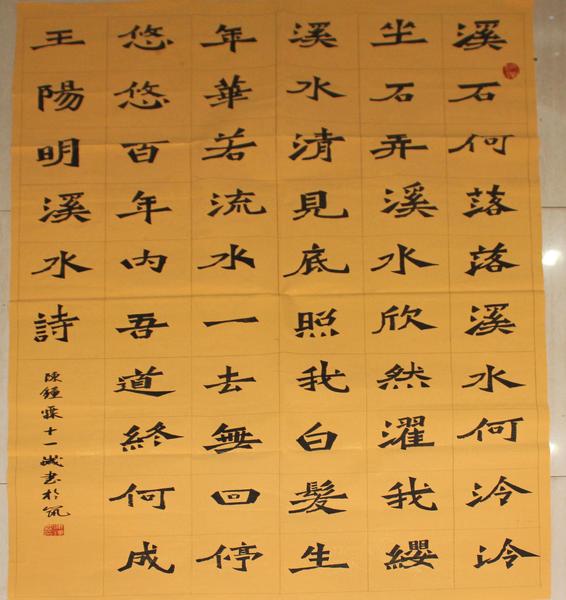 溪石何落落溪水何泠泠
坐石弄溪水欣然濯我纓
溪水清見底照我白髮生
年華若流水一去無回停
悠悠百年内吾道終何成
王陽明溪水詩
陳鍾霖十一歲書於筑